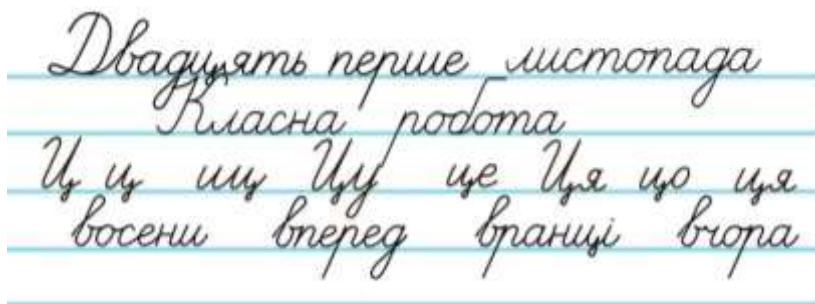 Двадцять перше листопада
Класна робота
Ц ц иц Цу це Ця цо ця
восени вперед вранці вчора